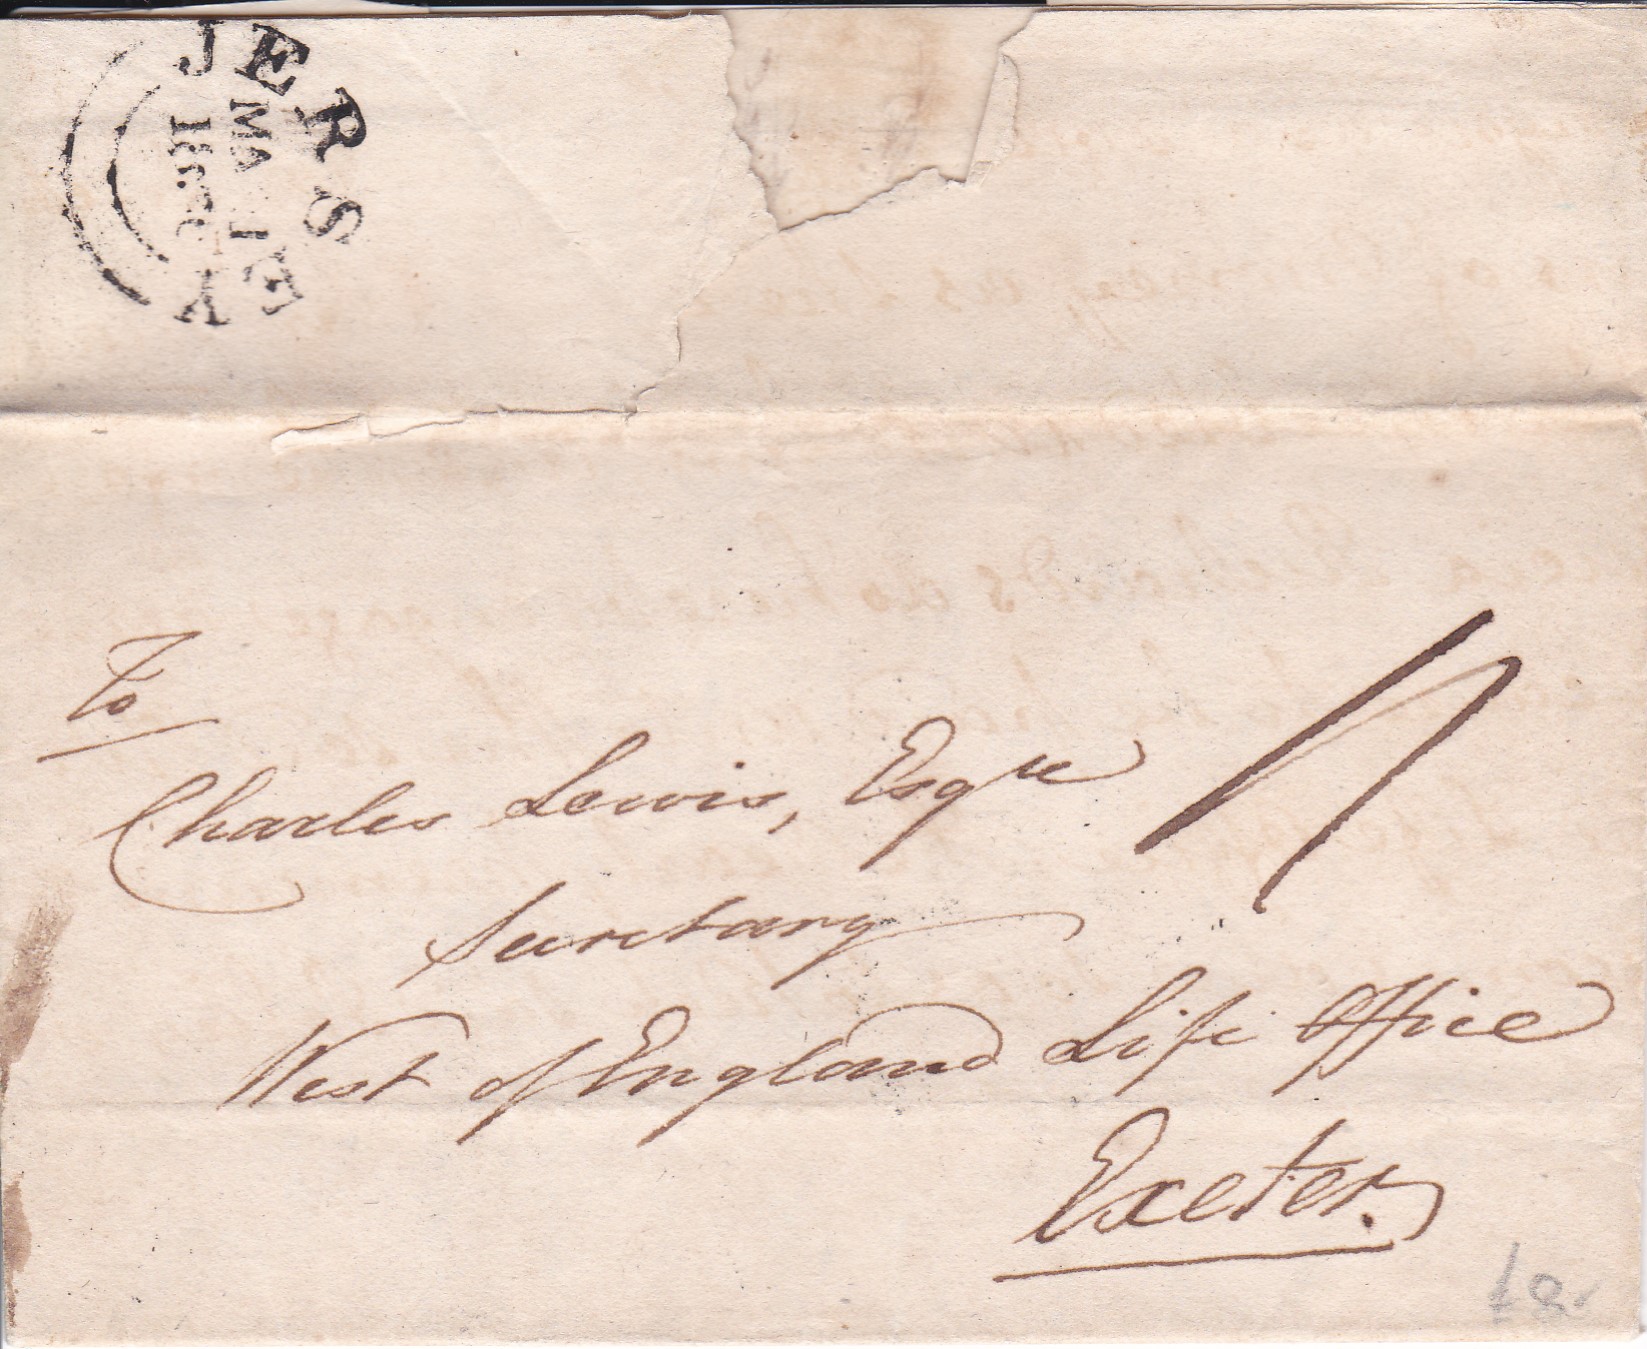 JERSEY
MA
To
Charles Lewis, Esqre
Secretary
West of England Life Office
Exeter.